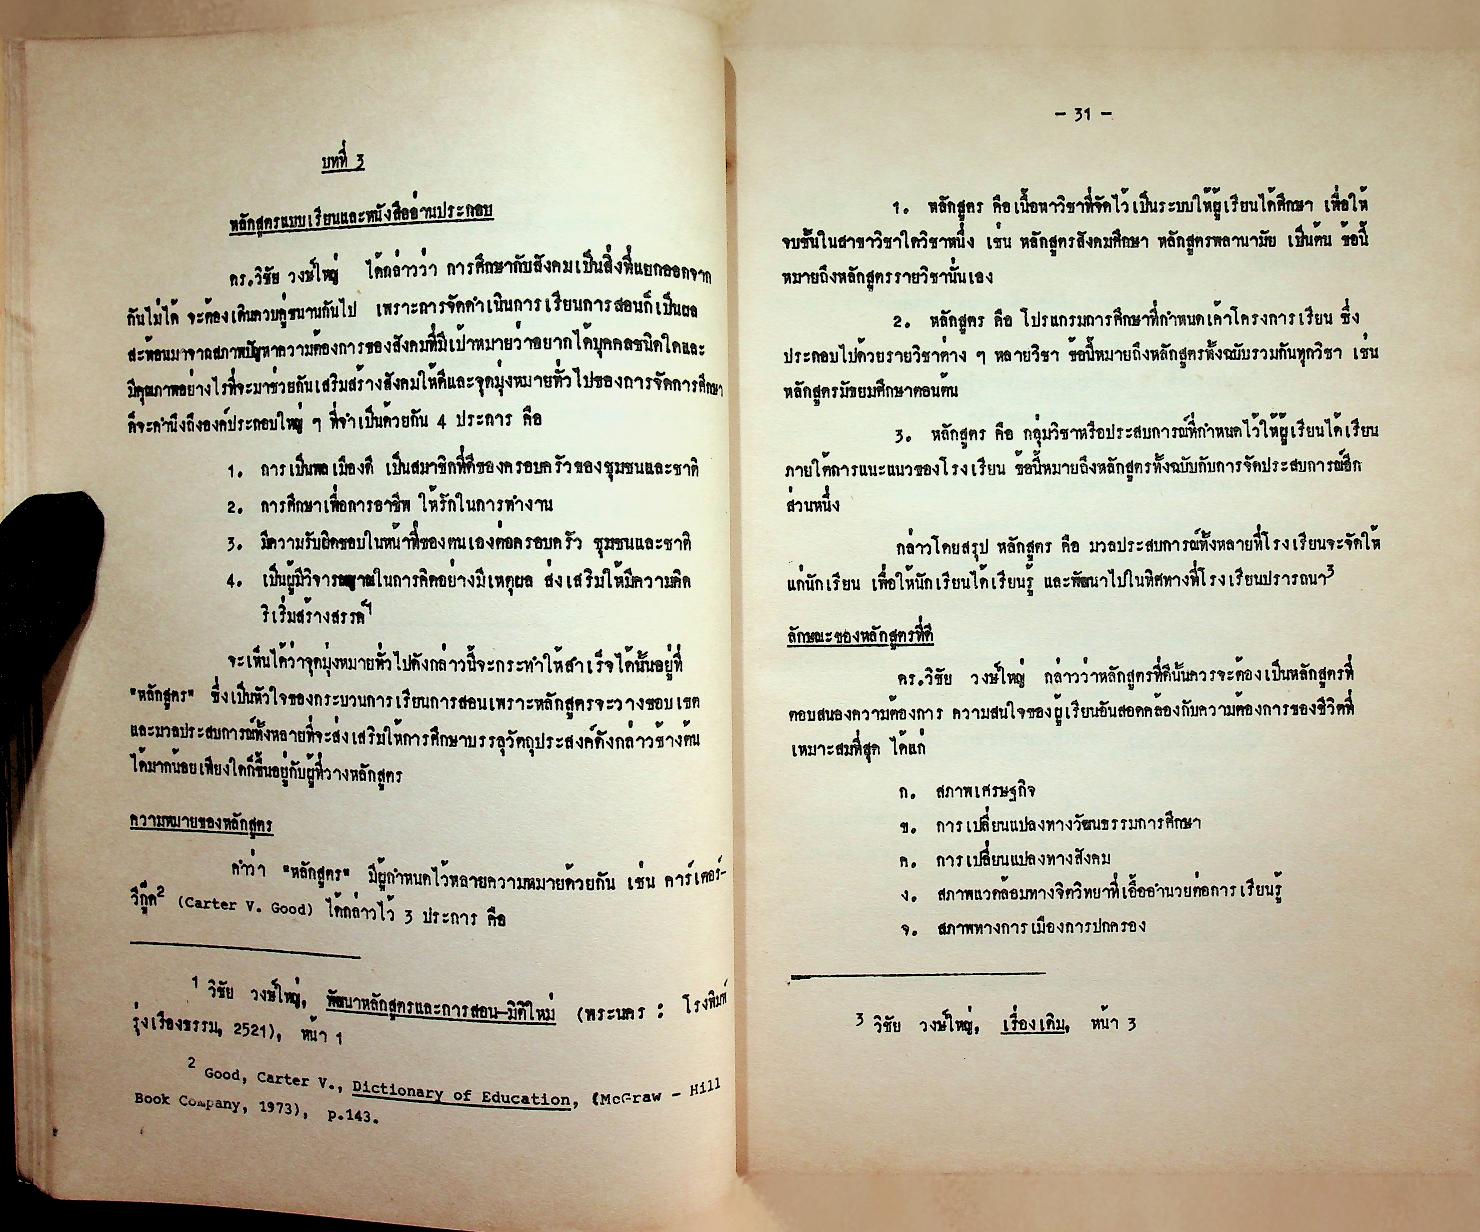 บทที่ 3
หลักสูตรแบบเรียนและหนังสืออ่านประกอบ
ดร.วิชัย วงษ์ใหญ่ ได้กล่าวว่า การศึกษากับสังคมเป็นสิ่งที่แยกออกจาก
กันไม่ได้ จะต้องเดินควบคู่ขนานกันไป เพราะการจัดดำเนินการเรียนการสอนก็เป็นผล
สะท้อนมาจากสภาพปัญหาความต้องการของสังคมที่มีเป้าหมายว่าอยากได้บุคคลชนิดใดและ
มีคุณภาพอย่างไรที่จะมาช่วยกันเสริมสร้างสังคมให้ดีและจุดมุ่งหมายทั่วไปของการจัดการศึกษา
ก็จะคำนึงถึงองค์ประกอบใหญ่ ๆ ที่จำเป็นด้วยกัน 4 ประการ คือ
1. การเป็นพลเมืองดี เป็นสมาชิกที่ดีของครอบครัวของชุมชนและชาติ
2. การศึกษาเพื่อการอาชีพ ให้รักในการทำงาน
3. มีความรับผิดชอบในหน้าที่ของตนเองต่อครอบครัว ชุมชนและชาติ
4. เป็นผู้มีวิจารณญาณในการคิดอย่างมีเหตุผล ส่งเสริมให้มีความคิด
ริเริ่มสร้างสรรค์1
จะเห็นได้ว่าจุดมุ่งหมายทั่วไปดังกล่าวนี้จะกระทำให้สำเร็จได้นั้นอยู่ที่
"หลักสูตร" ซึ่งเป็นหัวใจของกระบวนการเรียนการสอนเพราะหลักสูตรจะวางขอบเขต
และมวลประสบการณ์ทั้งหลายที่จะส่งเสริมให้การศึกษาบรรลุวัตถุประสงค์ดังกล่าวข้างต้น
ได้มากน้อยเพียงใดก็ขึ้นอยู่กับผู้ที่วางหลักสูตร
ความหมายของหลักสูตร
คำว่า "หลักสูตร" มีผู้กำหนดไว้หลายความหมายด้วยกัน เช่น คาร์เตอร์-
วีกู๊ด2 (Carter V. Good) ได้กล่าวไว้ 3 ประการ คือ
1 วิชัย วงษ์ใหญ่, พัฒนาหลักสูตรและการสอน-มิติใหม่ (พระนคร : โรงพิมพ์
รุ่งเรืองธรรม, 2521), หน้า 1
2 Good, Carter V., Dictionary of Education, (McGraw - Hill
Book Company, 1973), p.143.
- 31 -
1. หลักสูตร คือ เนื้อหาวิชาที่จัดไว้เป็นระบบให้ผู้เรียนได้ศึกษา เพื่อให้
จบชั้นในสาขาวิชาใดวิชาหนึ่ง เช่น หลักสูตรสังคมศึกษา หลักสูตรพลานามัย เป็นต้น ข้อนี้
หมายถึงหลักสูตรรายวิชานั่นเอง
2. หลักสูตร คือ โปรแกรมการศึกษาที่กำหนดเค้าโครงการเรียน ซึ่ง
ประกอบไปด้วยรายวิชาต่าง ๆ หลายวิชา ข้อนี้หมายถึงหลักสูตรทั้งฉบับรวมกันทุกวิชา เช่น
หลักสูตรมัธยมศึกษาตอนต้น
3. หลักสูตร คือ กลุ่มวิชาหรือประสบการณ์ที่กำหนดไว้ให้ผู้เรียนได้เรียน
ภายใต้การแนะแนวของโรงเรียน ข้อนี้หมายถึงหลักสูตรทั้งฉบับกับการจัดประสบการณ์อีก
ส่วนหนึ่ง
กล่าวโดยสรุป หลักสูตร คือ มวลประสบการณ์ทั้งหลายที่โรงเรียนจะจัดให้
แก่นักเรียน เพื่อให้นักเรียนได้เรียนรู้ และพัฒนาไปในทิศทางที่โรงเรียนปรารถนา3
ลักษณะของหลักสูตรที่ดี
ดร.วิชัย วงษ์ใหญ่ กล่าวว่าหลักสูตรที่ดีนั้นควรจะต้องเป็นหลักสูตรที่
ตอบสนองความต้องการ ความสนใจของผู้เรียนอันสอดคล้องกับความต้องการของชีวิตที่
เหมาะสมที่สุด ได้แก่
ก. สภาพเศรษฐกิจ
ข. การเปลี่ยนแปลงทางวัฒนธรรมการศึกษา
ค. การเปลี่ยนแปลงทางสังคม
ง. สภาพแวดล้อมทางจิตวิทยาที่เอื้ออำนวยต่อการเรียนรู้
จ. สภาพทางการเมืองการปกครอง
3 วิชัย วงษ์ใหญ่, เรื่องเดิม, หน้า 3